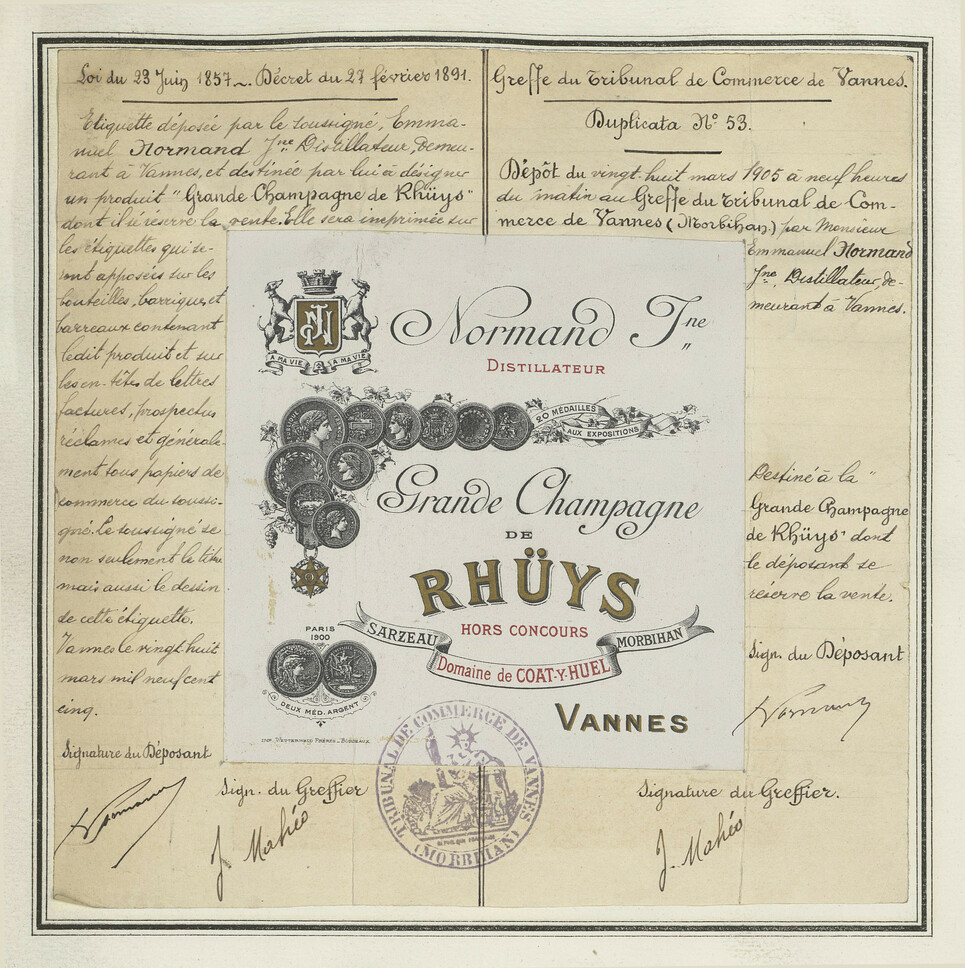 Loi du 23 Juin 1857 ~ Décret du 27 février 1891.
Etiquette déposée par le soussigné, Emma-
nuel Normand Jne Distillateur, demeu-
rant à Vannes, et destinée par lui à désigner
un produit "Grande Champagne de Rhüys"
dont il se réserve la vente. Elle sera imprimée sur
les étiquettes qui se-
ront apposées sur les
bouteilles, barriques et
barreaux contenant
ledit produit et sur
les en-têtes de lettres
factures, prospectus
réclames et générale-
ment tous papiers de
commerce du soussi-
gné. Le soussigné se
non seulement le titre
mais aussi le dessin
de cette étiquette.
Vannes le vingt huit
mars mil neuf cent
cinq.
Signature du Déposant
Normand
Sign. du Greffier
J. Mahéo
Greffe du Tribunal de Commerce de Vannes.
Duplicata No 53.
Dépôt du vingt huit mars 1905 à neuf heures
du matin au Greffe du Tribunal de Com-
merce de Vannes (Morbihan) par Monsieur
Emmanuel Normand
Jne, Distillateur, de-
meurant à Vannes.
Destiné à la "
Grande Champagne
de Rhüys" dont
le déposant se
réserve la vente.
Sign. du Déposant
Normand
Signature du Greffier.
J. Mahéo
JN
A MA VIE A MA VIE
Normand Jne
DISTILLATEUR
20 MÉDAILLES
AUX EXPOSITIONS
Grande Champagne
DE
RHÜYS
HORS CONCOURS
SARZEAU
MORBIHAN
Domaine de COAT-Y-HUEL
PARIS
1900
DEUX MÉD. ARGENT
VANNES
IMP. WETTERWALD FRÈRES. BORDEAUX
TRIBUNAL DE COMMERCE DE VANNES
(MORBIHAN)